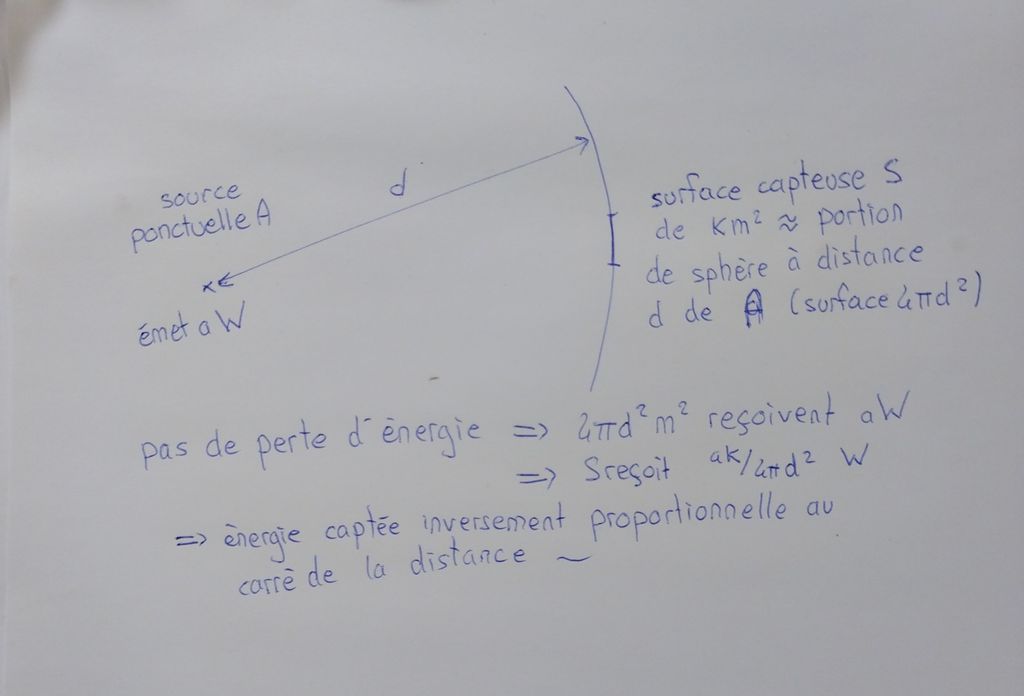 d
source
ponctuelle A
x
émet a W
surface capteuse S
de K m² ≈ portion
de sphère à distance
d de A (surface 4πd²)
pas de perte d'énergie => 4πd² m² reçoivent a W
=> S reçoit aK/4πd² W
=> énergie captée inversement proportionnelle au
carré de la distance ~